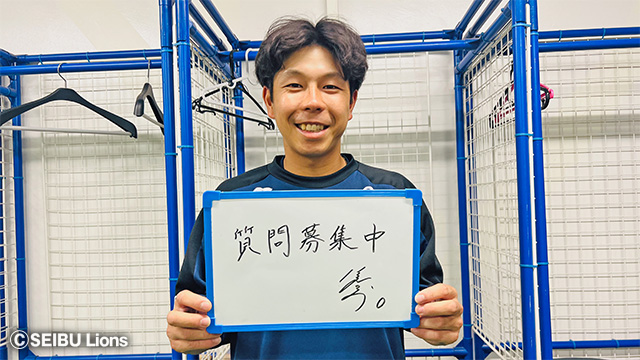 質問募集中
©SEIBU Lions